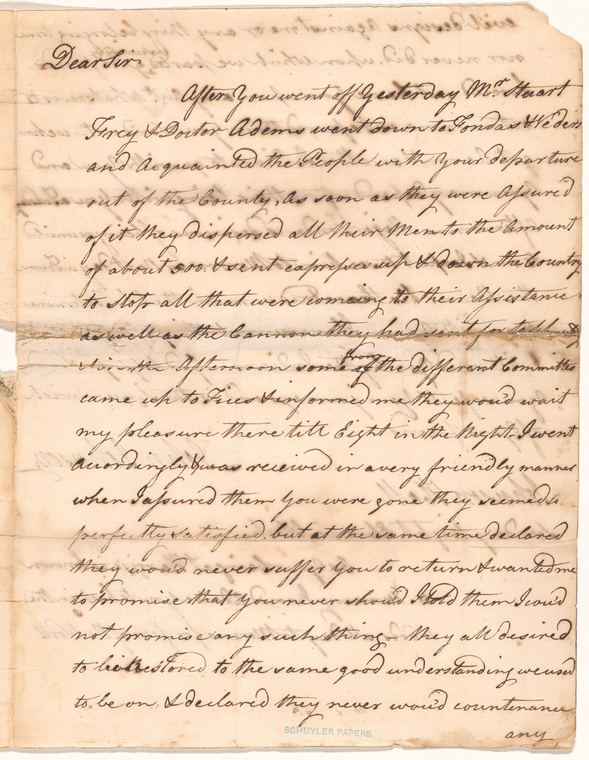 Dear Sir
After You went off Yesterday Mr. Stuart
Frey & Doctor Adems went down to Fondas & Veders
and Acquainted the People with Your departure
out of the County, As soon as they were Assured
of it they dispersed all their Men to the Amount
of about 500. & sent expresses up & down the Country
to stop all that were comeing to their Assistance
as well as the Cannon they had sent for to &
& in the Afternoon some from of the different Committees
came up to & informed me they wou'd wait
my pleasure there till Eight in the Night I went
Accordingly & was received in a very friendly manner
when I assured them You were gone they seemed
perfectly satisfied, but at the same time declared
they wou'd never suffer You to return & wanted me
to promise that You never shou'd I told them I wou'd
not promise any such thing - they all desired
to be Restored to the same good understanding we used
to be on, & declared they never wou'd countenance
any
SCHUYLER PAPERS.